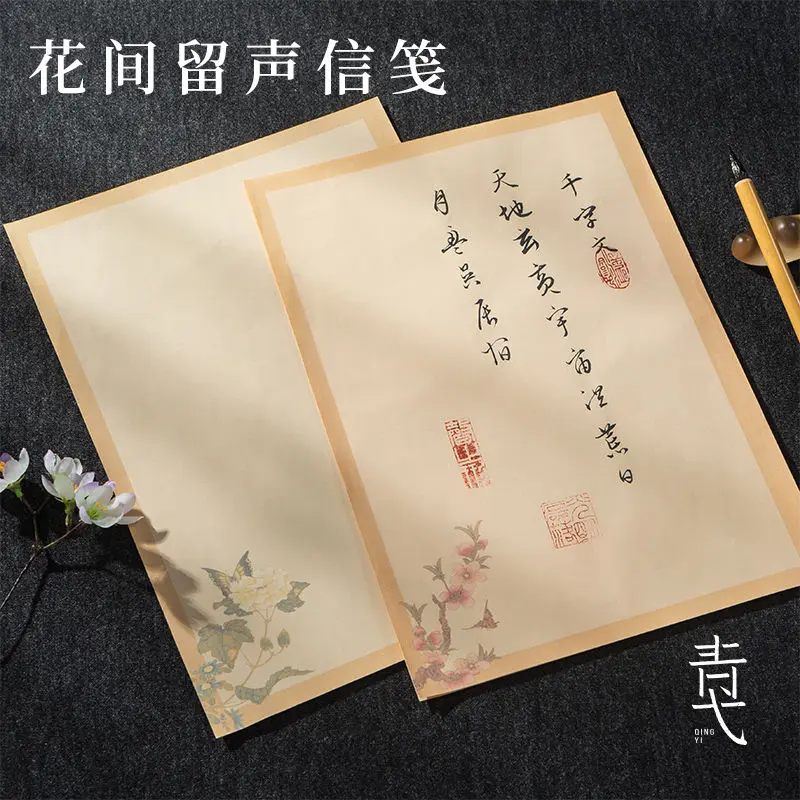 花间留声信笺
千字文
天地玄黄宇宙洪荒日
月盈昃辰宿
青弋
QING
YI